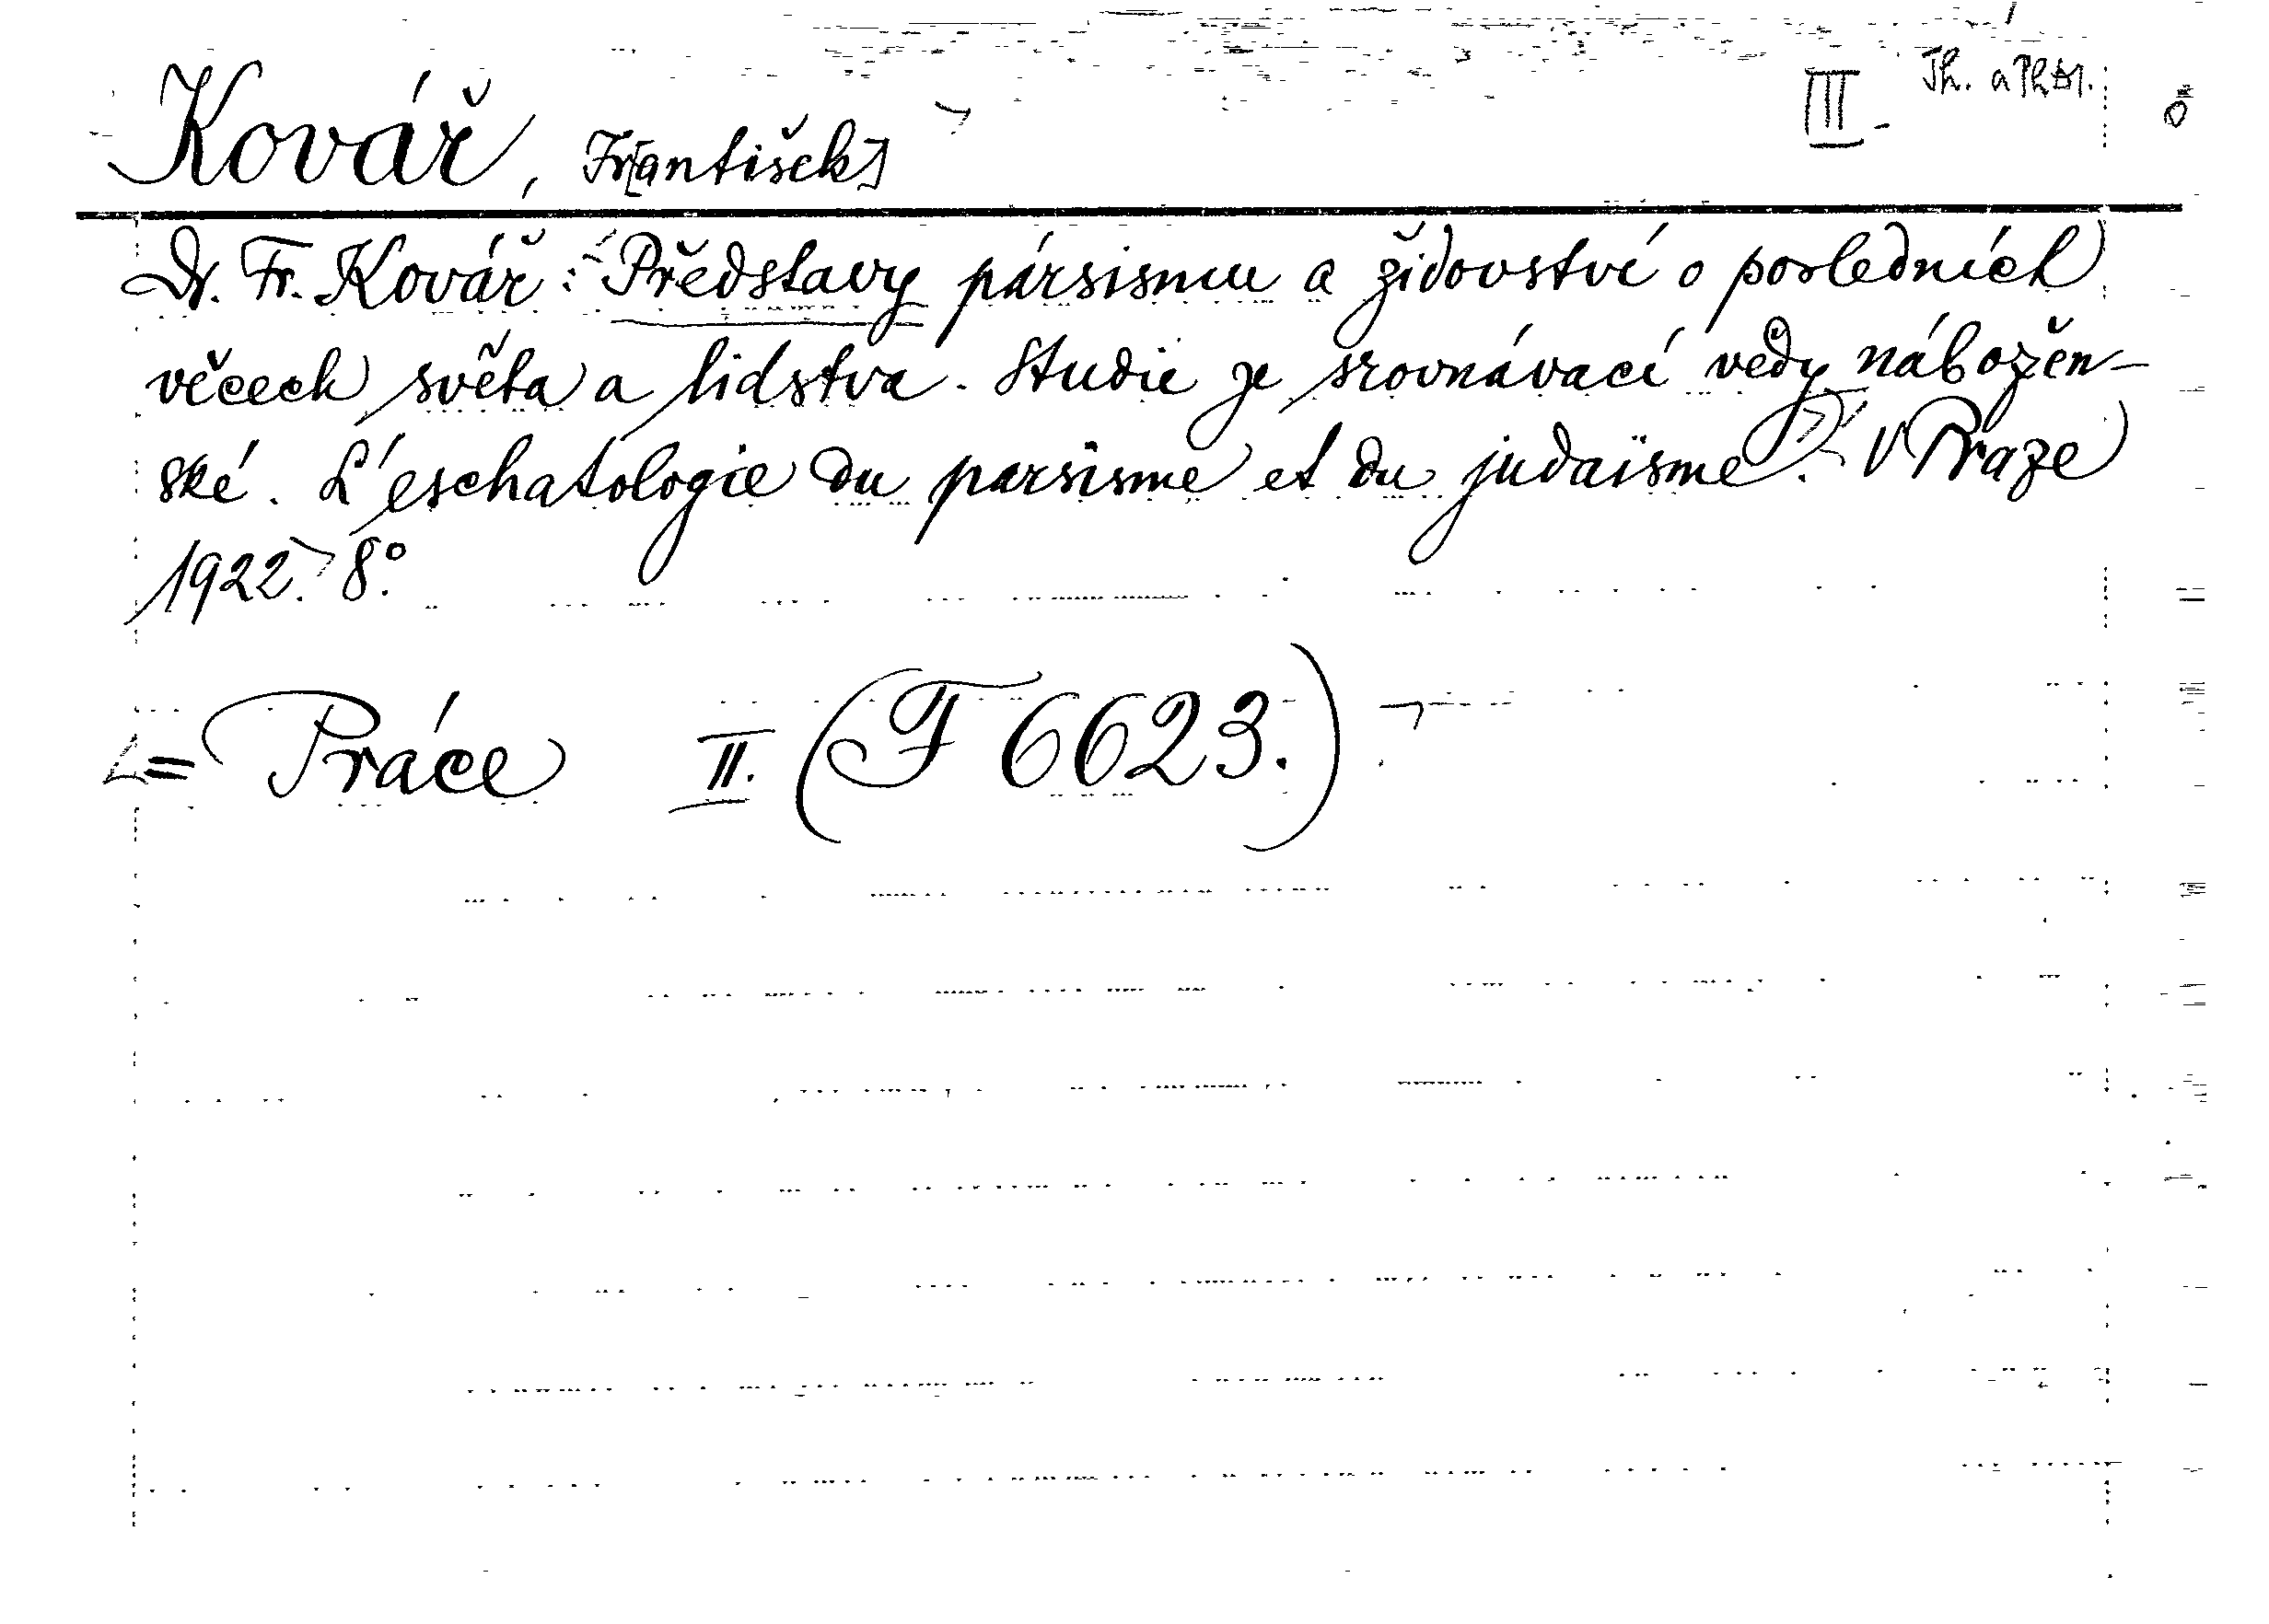 III. Th. a PhDr.
Kovář, Fr[antišek]
Dr. Fr. Kovář: Představy pársismu a židovství o posledních
věcech světa a lidstva. Studie ze srovnávací vědy nábožen-
ské. L'eschatologie du parsisme et du judaïsme. V Praze
1922. 8°.
= Práce II. (F 6623.)